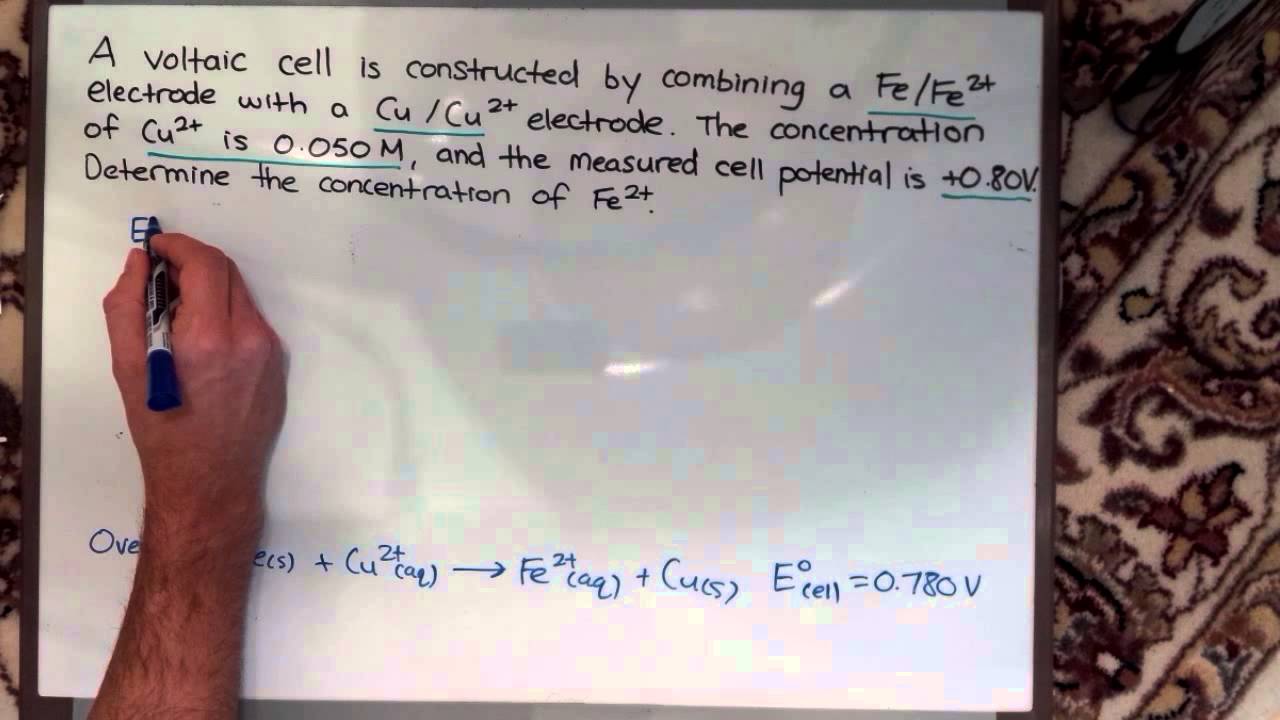 A voltaic cell is constructed by combining a Fe/Fe²⁺
electrode with a Cu/Cu²⁺ electrode. The concentration
of Cu²⁺ is 0.050M, and the measured cell potential is +0.80V.
Determine the concentration of Fe²⁺.
E
Ove e(s) + Cu²⁺(aq) → Fe²⁺(aq) + Cu(s) E°cell = 0.780 V